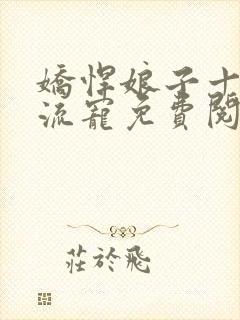 嬌悍娘子十
流寵免費閱
莊於飛